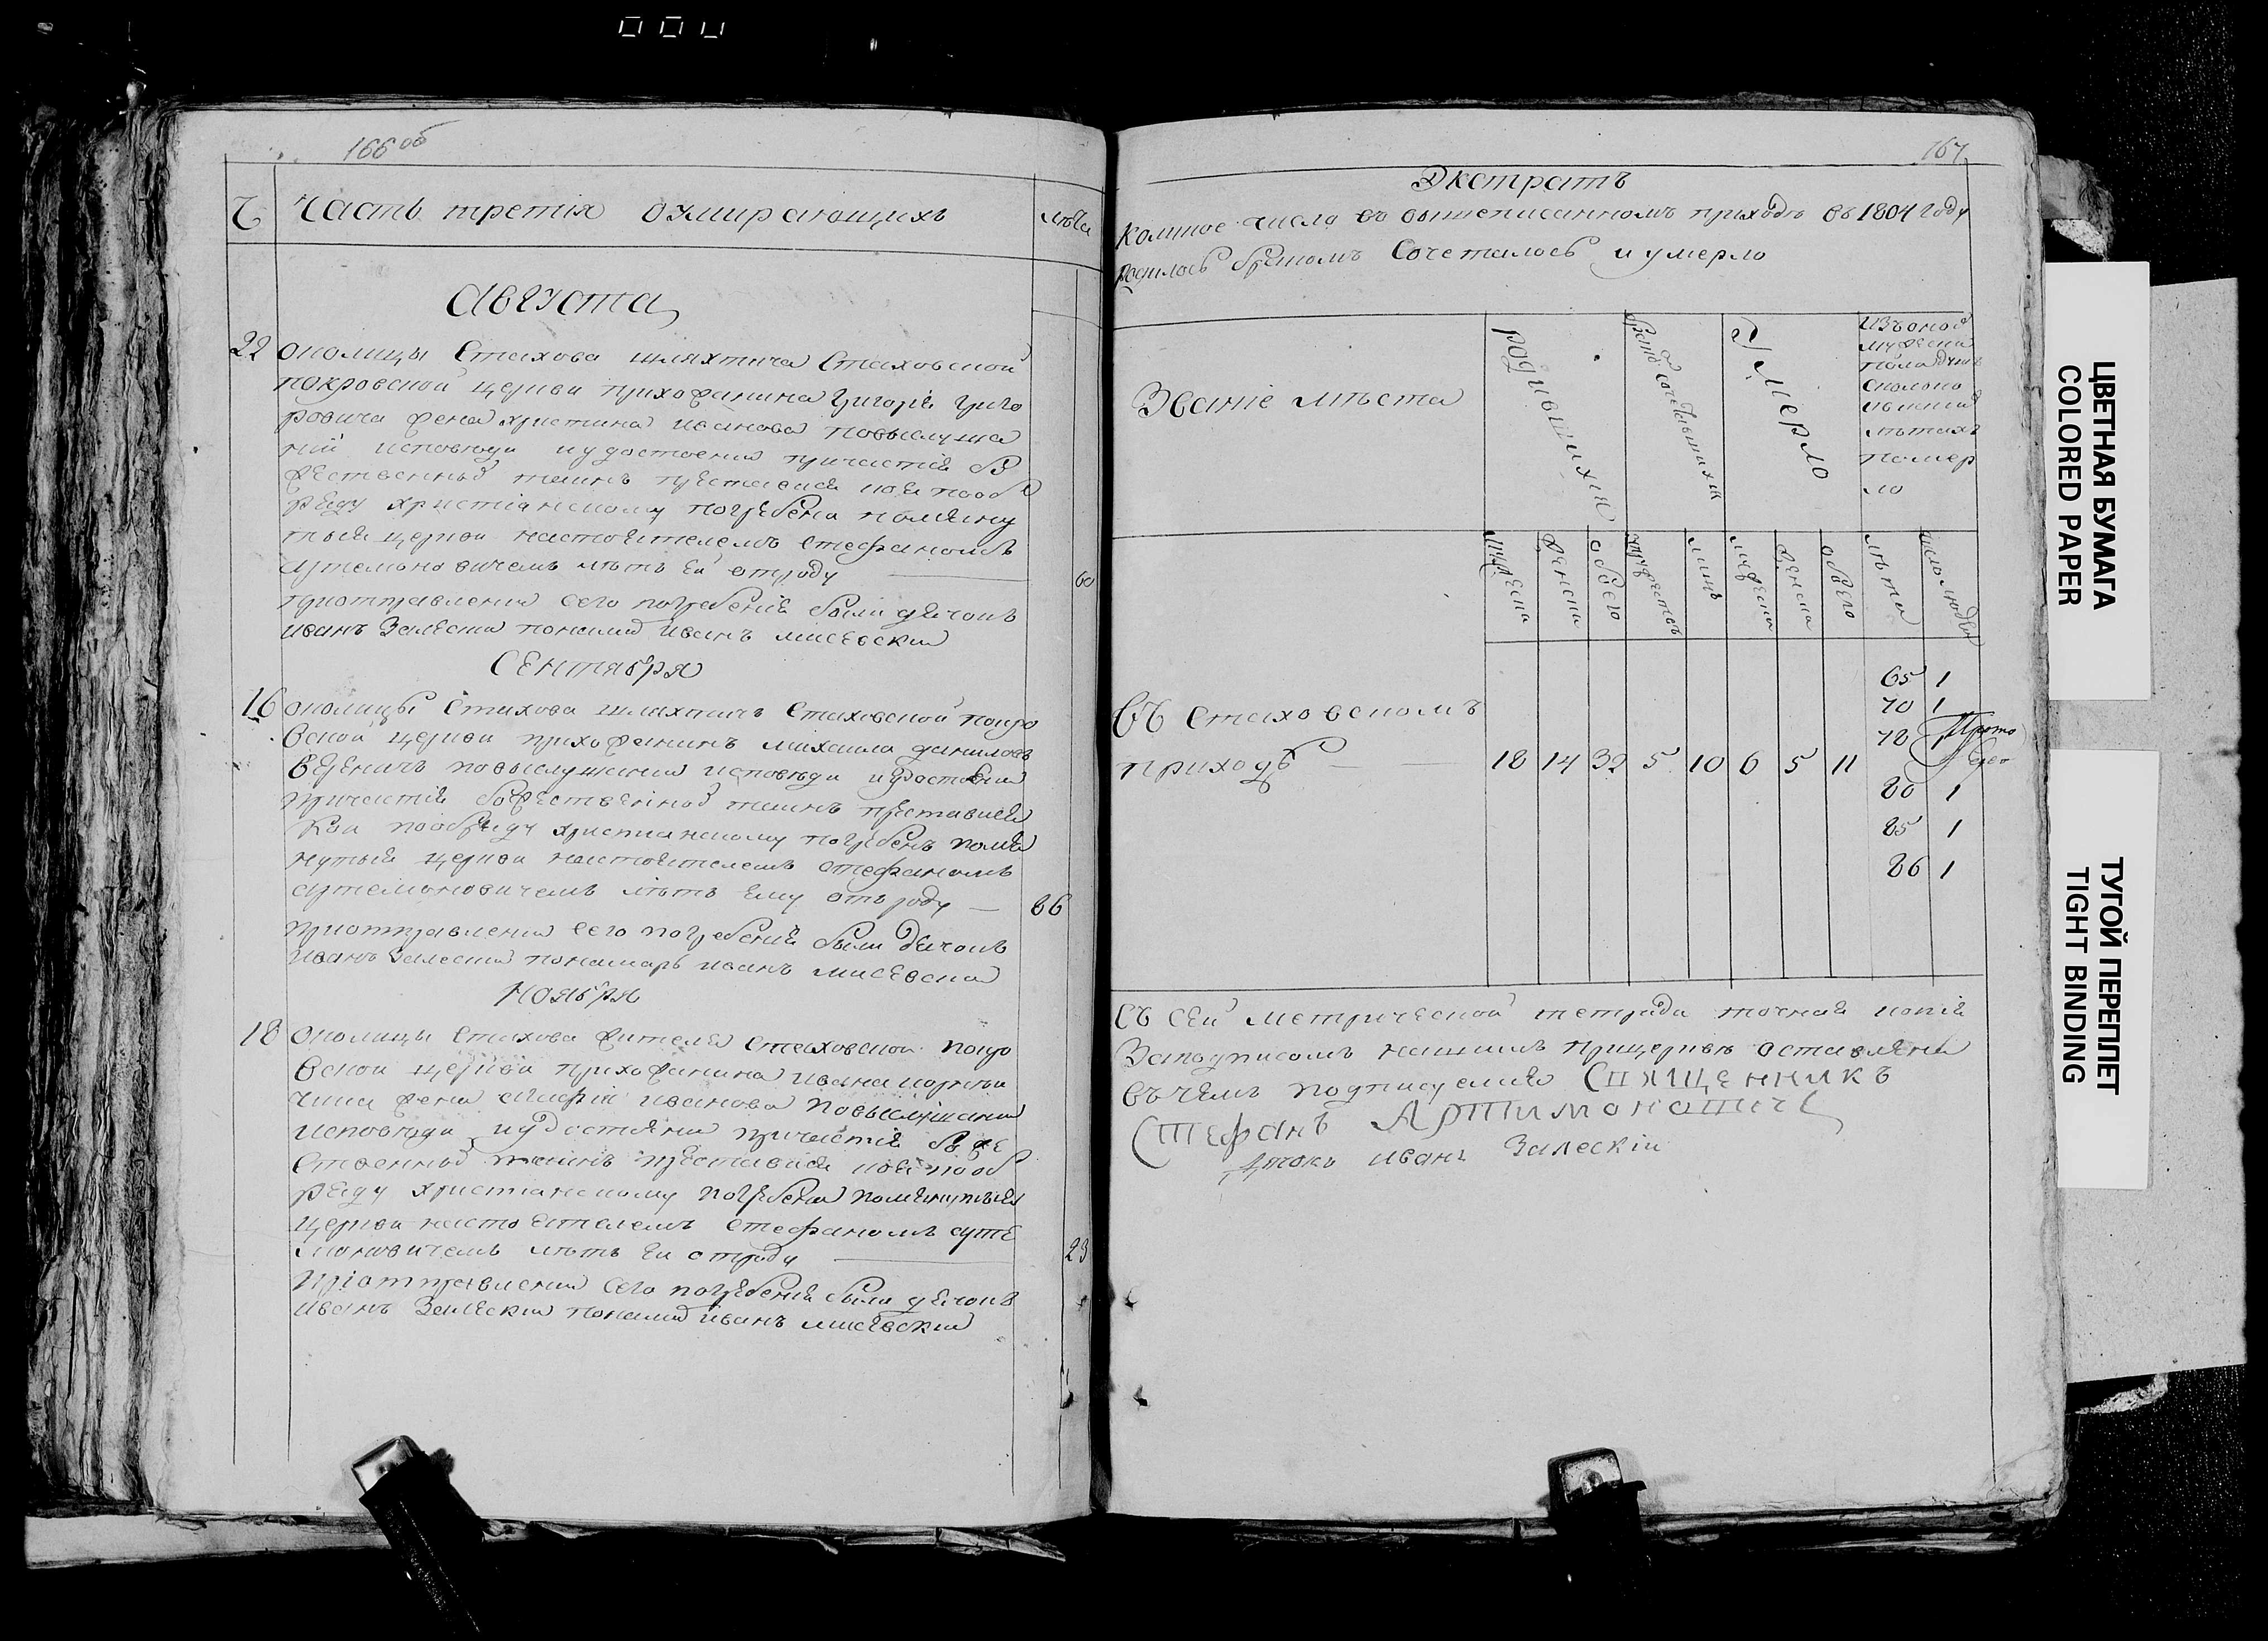 166 об
Ч Часть третія о умирающихъ лѣта
Августа
22 околицы Стахова шляхтича Стаховской
покровской церкви прихожанина Григорія Григо
ровича жена Христина Иванова повыслуша
ніи исповѣди иудостоенія причастія бо
жественныхъ таинъ преставися коя пооб
ряду христіанскому погребена помяну
тыя церкви настоятелемъ Стефаномъ
Артемоновичемъ лѣтъ ей отроду 60
приотправленіи сего погребенія были дячокъ
Иванъ Залески понамар Иванъ Мисевскій
Сентября
16 околицы Стахова шляхтичъ Стаховской покро
вской церкви прихожанинъ Михаила Даниловъ
повыслушаніи исповѣди иудостоеніи
причастія божественныхъ таинъ преставися
кой пообряду христианскому погребенъ помя
нутыя церкви настоятелемъ Стефаномъ
Артемоновичемъ лѣтъ ему отъ роду 86
приотправленіи сего погребенія были дячокъ
Иванъ Залески понамарь Иванъ Мисевски
Ноября
18 околицы Стахова жителя Стаховской покро
вской церкви прихожанина Ивана
жена Иванова повыслушаніи
исповѣди иудостоеніи причастія боже
ственныхъ таинъ преставися коя пооб
ряду христианскому погребена помянутыя
церкви настоятелемъ Стефаномъ Арте
моновичемъ лѣтъ ей отроду 23
приотправленіи сего погребенія были дячокъ
Иванъ Залескій понамар Иванъ Мисевскій
167
Экстратъ
Коликое число въ вышеписанномъ приходѣ въ 1804 году
родилось бракомъ сочеталось и умерло
Званіе мѣста
родившихся
бракосочетавшихся
Умерло
изъоной
мужеска
пола душъ
сколько
въ коихъ
лѣтахъ
помер
ло
мужеска женска обоего супружествъ лицъ мужеска женска обоего лѣта число людей
65 1
въ Стаховскомъ 70 1
78 1
приходѣ 18 14 32 5 10 6 5 11
80 1
85 1
86 1
Съ сей метрической тетради точная копія
Заподписомъ нашимъ прицеркви оставлена
въчемъ подписуемся Священникъ
Стефанъ Артимоновичъ
Дячокъ Иванъ Залескій
ЦВЕТНАЯ БУМАГА
COLORED PAPER
ТУГОЙ ПЕРЕПЛЕТ
TIGHT BINDING